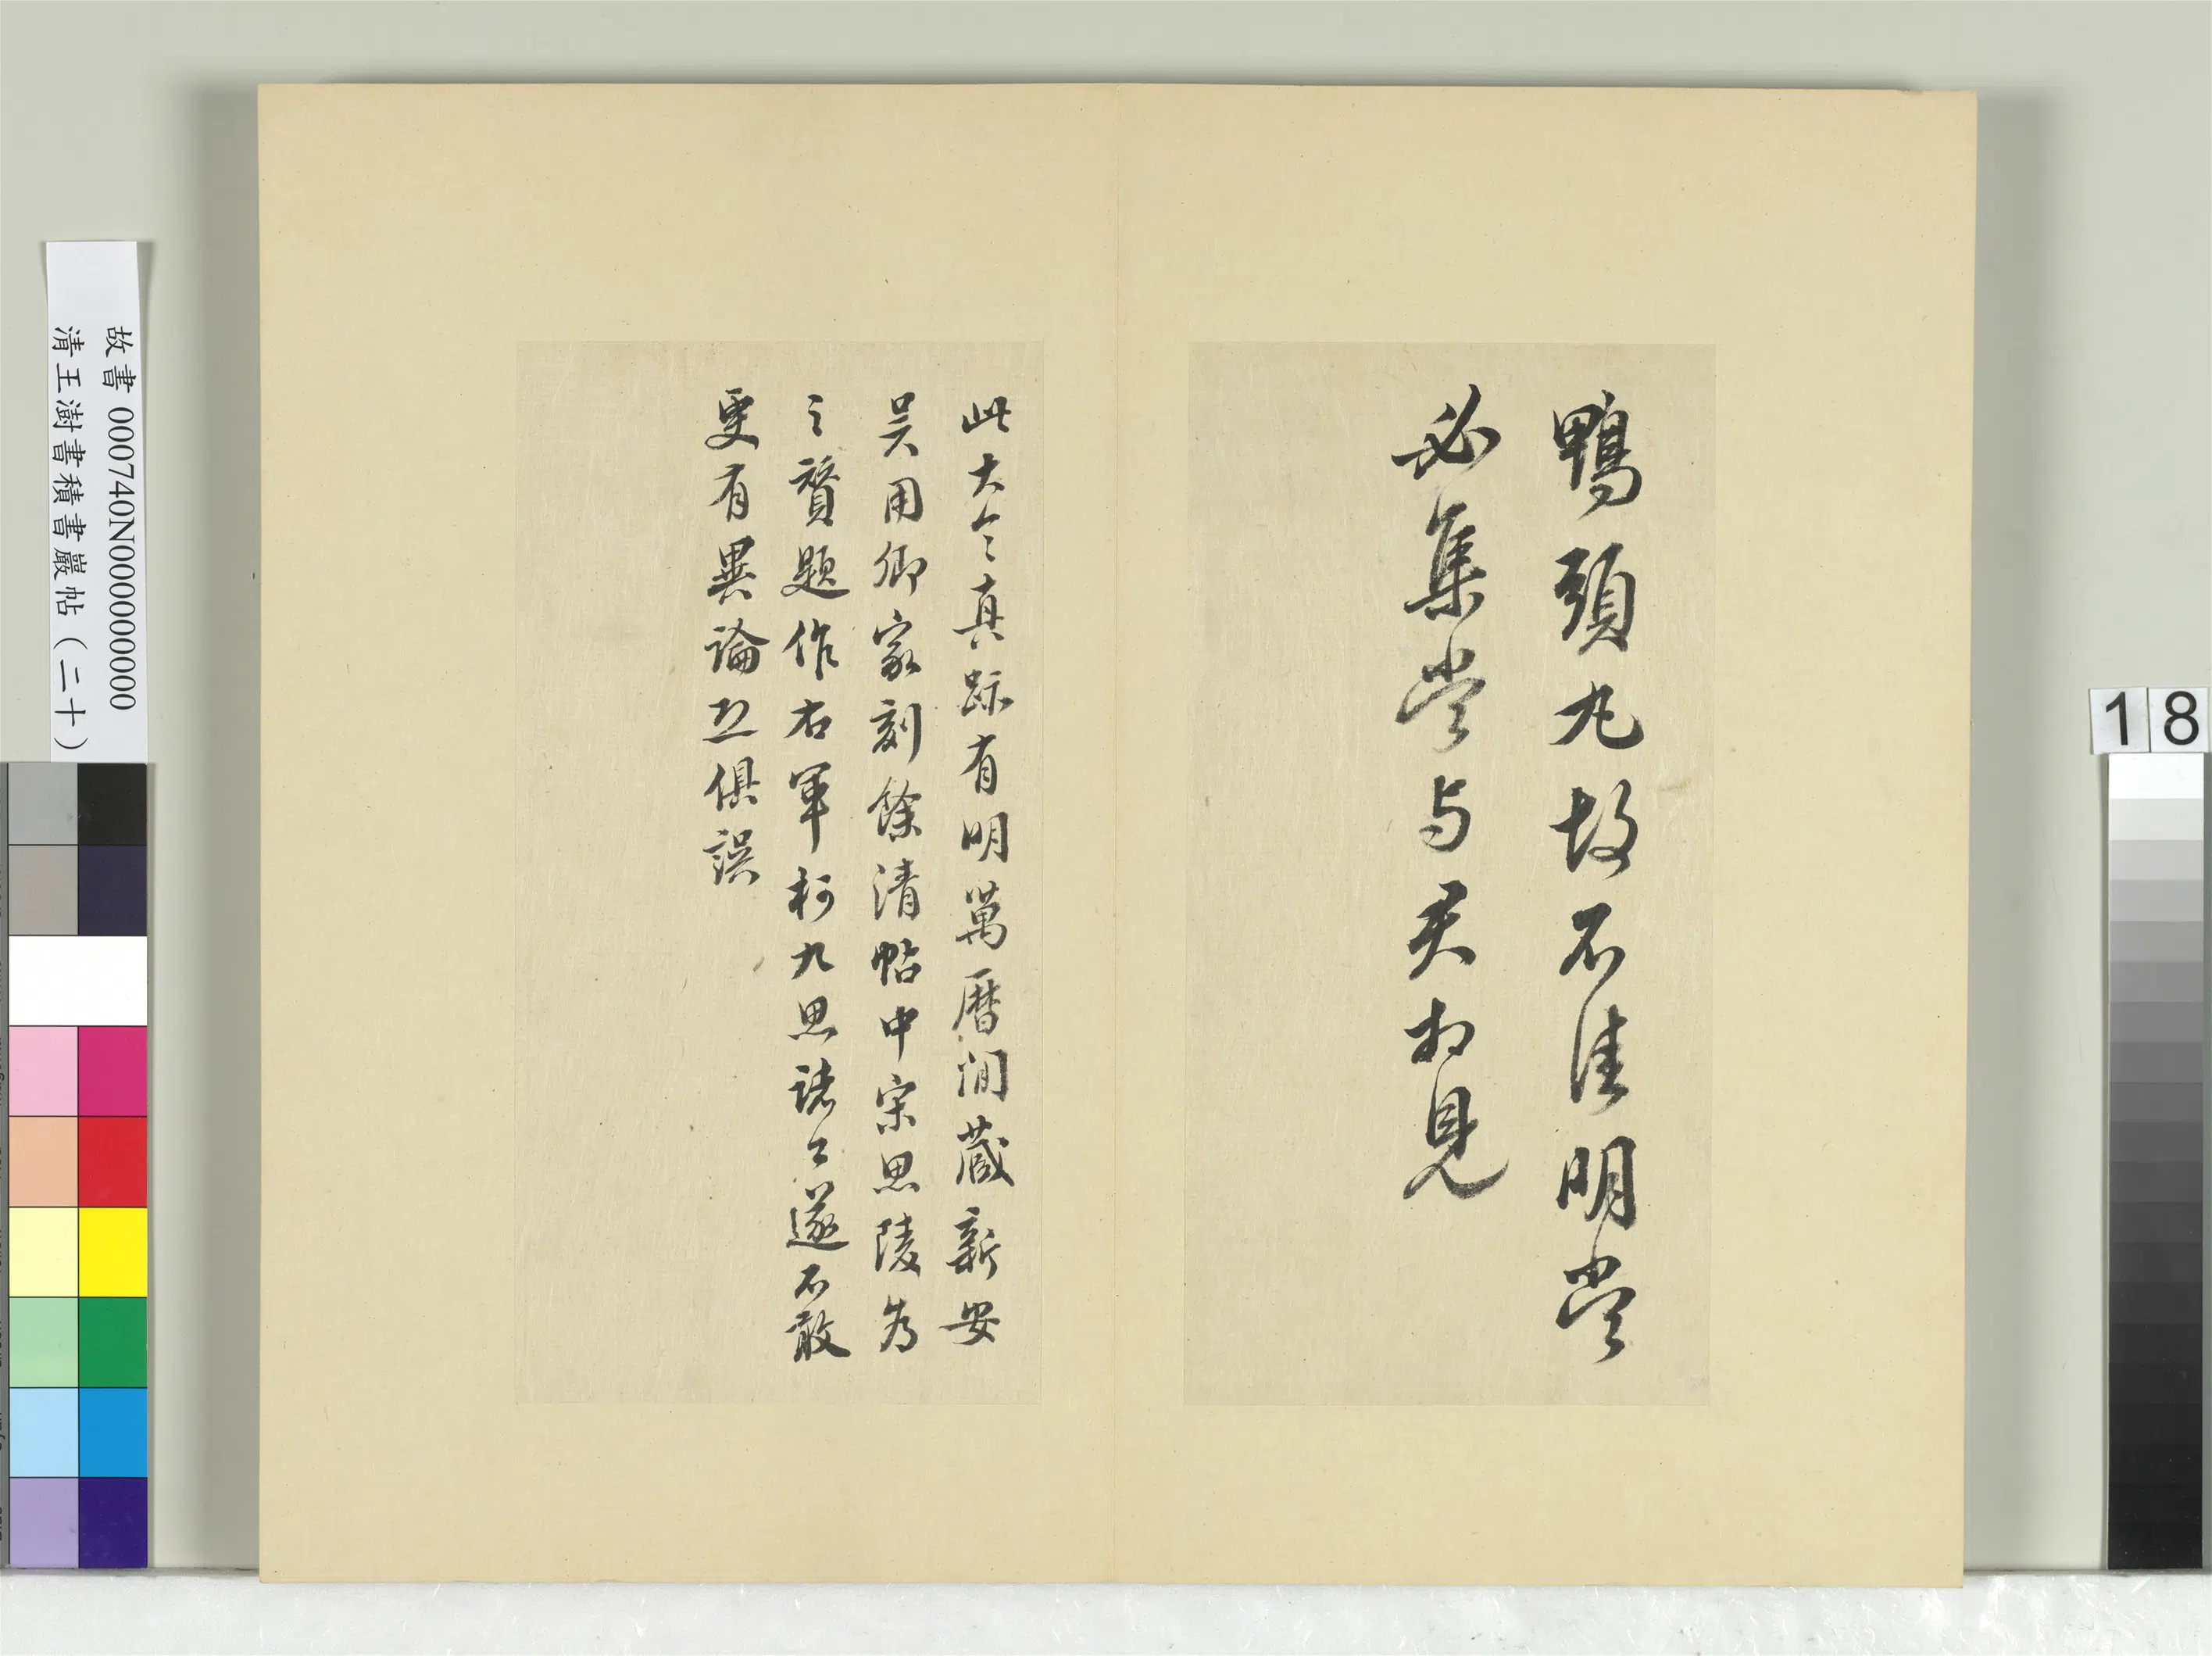 鴨頭丸故不佳明當
必集當与君相見
此大令真跡有明萬曆間藏新安
吳用卿家刻餘清帖中宋思陵為
之贊題作右軍柯九思諸公遂不敢
更有異論並俱誤
故書 000740N000000000
清王澍書積書巖帖（二十）
18